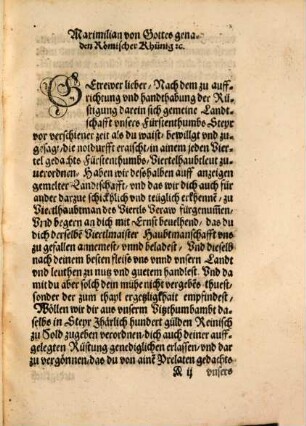 Maximilian von Gottes gena-
den Römischer Khünig ꝛc.
GEtrewer lieber, Nach dem zu auff-
richtung vnd handthabung der Rü-
stigung darein sich gemeine Landt-
schafft vnsers Fürstenthumbs Steyr
vor verschiener zeit als du waist, bewilligt vnd zu-
gesagt, die notdurfft eraischt, in einem jeden Vier-
tel gedachts Fürstenthumbs, Viertlhaubtleut zu-
uerordnen, Haben wir deßhalben auff anzeigen
gemelter Landtschafft, vnd das wir dich auch für
ander darzue schicklich vnd teüglich erkhennē, zu
Viertlhaubtman des Viertls Voraw fürgenumēn,
Vnd begern an dich mit Ernst beuelhend, das du
dich derselbē Viertlmaister Haubtmanschafft vns
zu gefallen annemest, vnnd beladest, Vnd dieselb
nach deinem besten fleiss vns vnnd vnsern Landt
vnd leuthen zu nutz vnd guetem handlest. Vnd da
mit du aber solch dein mühe nicht vergebēs thuest
sonder der zum thayl ergezligkhait empfindest,
Wöllen wir dir auß vnserm Vitzthumbambt da-
selbs in Steyr Jhärlich hundert gülden Reinisch
zu Sold zugeben verordnen, dich auch deiner auff-
gelegten Rüstung genediglichen erlassen, vnd dar
zu vergönnen, das du von ainē Prelaten gedachts
A ij vnsers